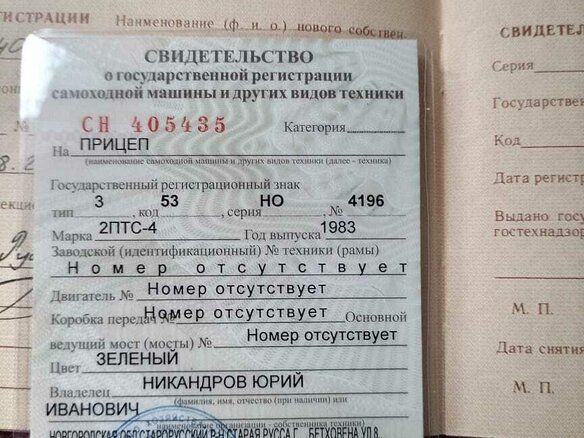 ИСТРАЦИИ Наименование (ф. и. о.) нового собствен
СВИДЕТЕЛЬСТВО
о государственной регистрации
самоходной машины и других видов техники
СН 405435 Категория
На ПРИЦЕП
(наименование самоходной машины и других видов техники (далее - техника)
Государственный регистрационный знак
тип 3, код 53, серия НО, № 4196
Марка 2ПТС-4 Год выпуска 1983
Заводской (идентификационный) № техники (рамы)
Номер отсутствует
Двигатель № Номер отсутствует
Коробка передач № Номер отсутствует Основной
ведущий мост (мосты) № Номер отсутствует
Цвет ЗЕЛЕНЫЙ
Владелец НИКАНДРОВ ЮРИЙ
(фамилия, имя, отчество (при наличии) или
ИВАНОВИЧ
наименование организации - собственника техники
НОВГОРОДСКАЯ ОБЛ,СТАРОРУССКИЙ Р-Н,СТАРАЯ РУССА Г., БЕТХОВЕНА УЛ,8
СВИДЕТЕЛ
Серия
Государствен
Код
Дата регист
Выдано гос
гостехнадзор
М. П.
Дата снятия
М. П.